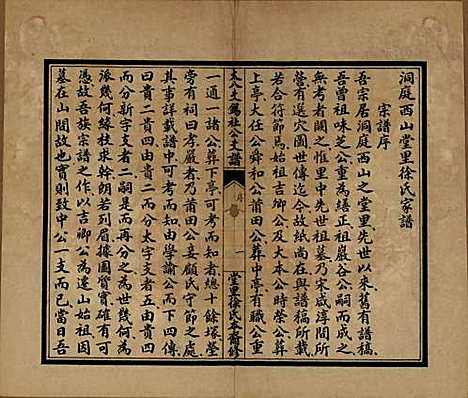 洞庭西山堂里徐氏家譜
宗譜序
吾宗居洞庭西山之堂里先世以來舊有譜稿
吾曾祖味芝公重為繕正祖嚴谷公嗣而成之
無考者闕之惟里中先世祖墓乃宋咸淳間所
遺穴圖世傳迄今故紙尚存在興與譜稿所載
若合符節焉始祖吉卿公及大本公時榮公葬
上亭大任公舜和公莆田公葬中亭有職公重
太八主錫祉公支譜
序
一
堂里徐氏本齋修
一通一諸公葬下亭可考而知者總十餘塚塋
旁有祠曰孝嚴乃莆田公妾顧氏守節之處也
其事詳載譜中可考而知由學諭公而下四傳
而四貴二貴四貴二而分太字支者五由貴四
而分新字支者二嗣是而再分之為世幾何為
派幾何其求如幹朗若列眉據圖質實確有可
憑故吾族宗譜之作以吉卿公為遷山始祖因
墓在山間故也實則致中公一支而已當日吾